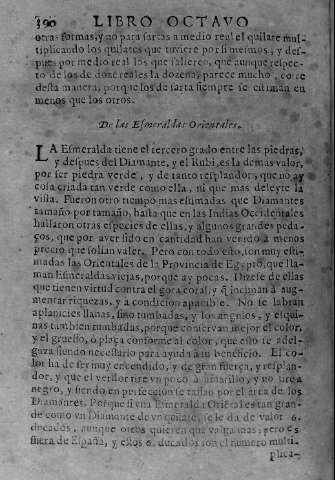 390 LIBRO OCTAVO
otras formas, y no para sartas a medio real el quilate mul-
tiplicando los quilates que tuviere por si mesmos, y des-
pues por medio real los que salieren, que aunque respec-
to de los de doze reales la dozena, parece mucho, corre
desta manera, porque los de sarta siempre se estiman en
menos que los otros.
De las Esmeraldas Orientales.
LA Esmeralda tiene el tercero grado entre las piedras,
y despues del Diamante, y el Rubi, es la de mas valor,
por ser piedra verde, y de tanto resplandor, que no ay
cosa criada tan verde como ella, ni que mas deleyte la
vista. Fueron otro tiempo mas estimadas que Diamantes
tamaño por tamaño, hasta que en las Indias Occidentales
hallaron otras especies de ellas, y algunos grandes peda-
ços, que por aver sido en cantidad han venido a menos
precio que solian valer. Pero con todo esso, son muy esti-
madas las Orientales de la Provincia de Egypto, que lla-
man Esmeraldas viejas, porque ay pocas. Dizese de ellas
que tienen virtud contra el gota coral, y q̃ inclinan à au-
mentar riquezas, y a condicion apacible. No se labran
a planicies llanas, sino tumbadas, y los angulos, y esqui-
nas tambien tumbadas, porque conservan mejor el color,
y el gruesso, ò plaça conforme al color, que esto se adel-
gaza siendo necessario para ayuda à su beneficio. El co-
lor ha de ser muy encendido, y de gran fuerça, y resplan-
dor, y que el verdor tire vn poco à amarillo, y no tire a
negro, y siendo en perfeccion se tassan por el area de los
Diamantes. Porque si vna Esmeralda Oriẽtal es tan gran-
de como vn Diamante de vn quilate, se le dà de valor 6.
ducados, aunque otros quieren que valga mas; pero es
fuera de España, y estos 6. ducados son el numero multi-
plica-